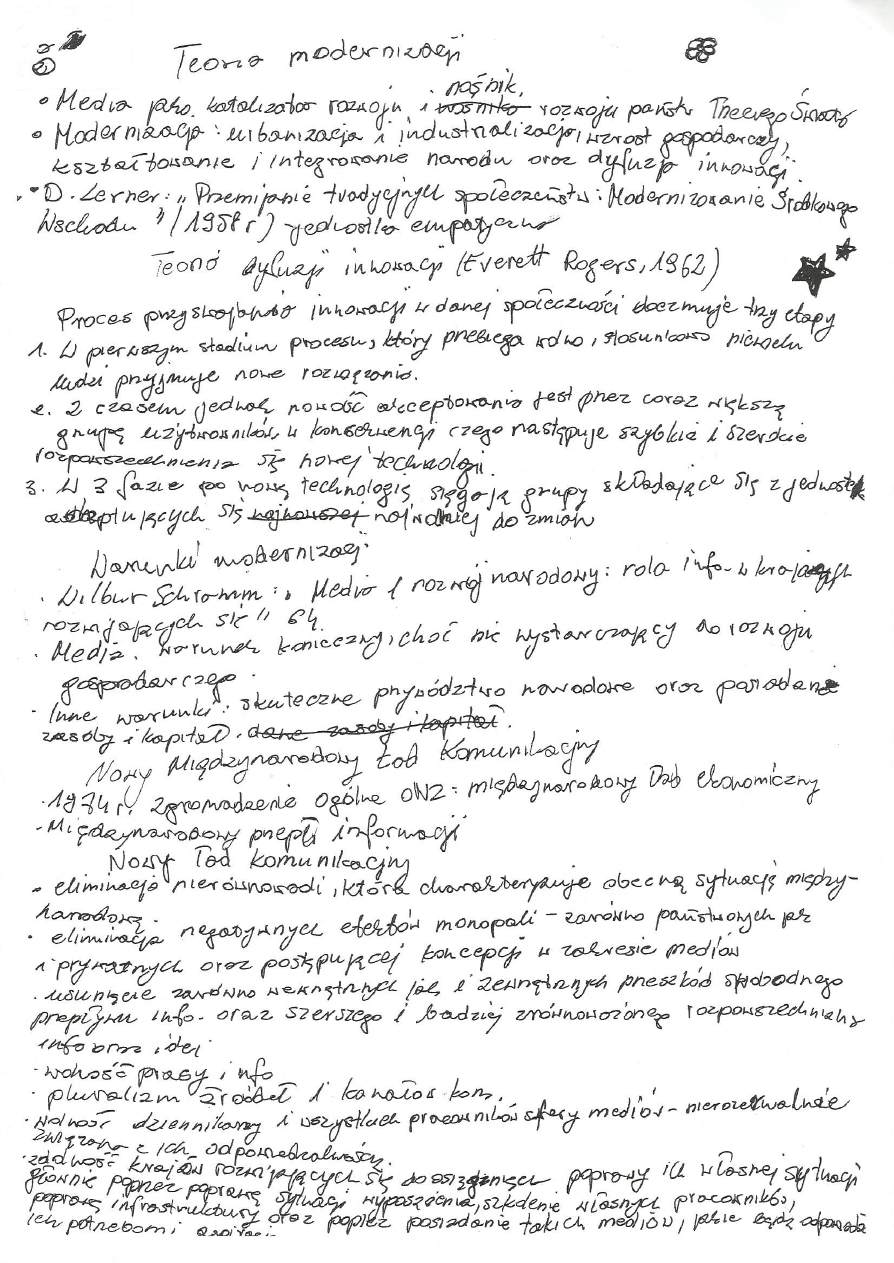 Teoria modernizacji
nośnik,
• Media jako katalizator rozwoju i rozwoju państw Trzeciego Świata
• Modernizacja: urbanizacja i industrializacja, wzrost gospodarczy,
kształtowanie i integrowanie narodu oraz dyfuzja innowacji.
• D. Lerner: „Przemijanie tradycyjnych społeczeństw: Modernizowanie Środkowego
Wschodu" (1958 r) - jednostka empatyczna
Teoria dyfuzji innowacji (Everett Rogers, 1962)
Proces przyswajania innowacji w danej społeczności trzy etapy
1. W pierwszym stadium procesu, który przebiega wolno, stosunkowo niewielu
ludzi przyjmuje nowe rozwiązania.
2. Z czasem jednak nowość akceptowania jest przez coraz większą
grupę użytkowników, w konsekwencji czego następuje szybkie i szerokie
rozpowszechnienie się nowej technologi.
3. W 3 fazie po nową technologię sięgają grupy składające się z jednostek
adaptujących się najwolniej do zmian
Warunki modernizacji
• Wilbur Schramm: „Media i rozwój narodowy: rola info. w krajach
rozwijających się" 64.
• Media: warunek konieczny, choć nie wystarczający do rozwoju
gospodarczego.
• Inne warunki: skuteczne przywództwo narodowe oraz posiadane
zasoby i kapitał. dane zasoby i kapitał.
Nowy Międzynarodowy Ład Komunikacyjny
• 1974 r. Zgromadzenie Ogólne ONZ: międzynarodowy ład ekonomiczny
• Międzynarodowy przepł informacji
Nowy ład komunikacyjny
• eliminacja nierównowagi, która charakteryzuje obecną sytuację między-
narodową.
• eliminacja negatywnych efektów monopoli - zarówno państwowych jak
i prywatnych oraz postępującej koncepcji w zakresie mediów
• usunięcie zarówno wewnętrznych jak i zewnętrznych przeszkód swobodnego
przepływu info. oraz szerszego i bardziej zrównoważonego rozpowszechniania
info oraz idei
• wolność prasy i info
• pluralizm źródeł i kanałów kom.
• wolność dziennikarzy i wszystkich pracowników sfery mediów - nierozerwalnie
związana z ich odpowiedzialnością.
• zdolność krajów rozwijających się do osiągnięcia poprawy ich własnej sytuacji
głównie poprzez poprawę sytuacji wyposażenia, szkolenie własnych pracowników,
poprawę infrastruktury oraz poprzez posiadanie takich mediów, jakie będą odpowiada
ich potrzebom i